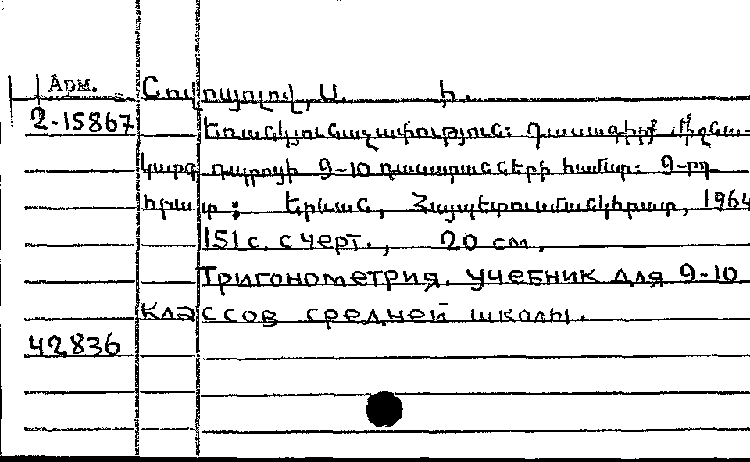 Арм.
Նովոսյոլով, Ս. Ի.
2-15867
Եռանկյունաչափություն: Դասագիրք միջնա-
կարգ դպրոցի 9-10 դասարանների համար: 9-րդ
հրատ: Երևան, Հայպետուսմանկհրատ, 1964
151 с. с черт., 20 см.
Тригонометрия. Учебник для 9-10
классов средней школы.
42836